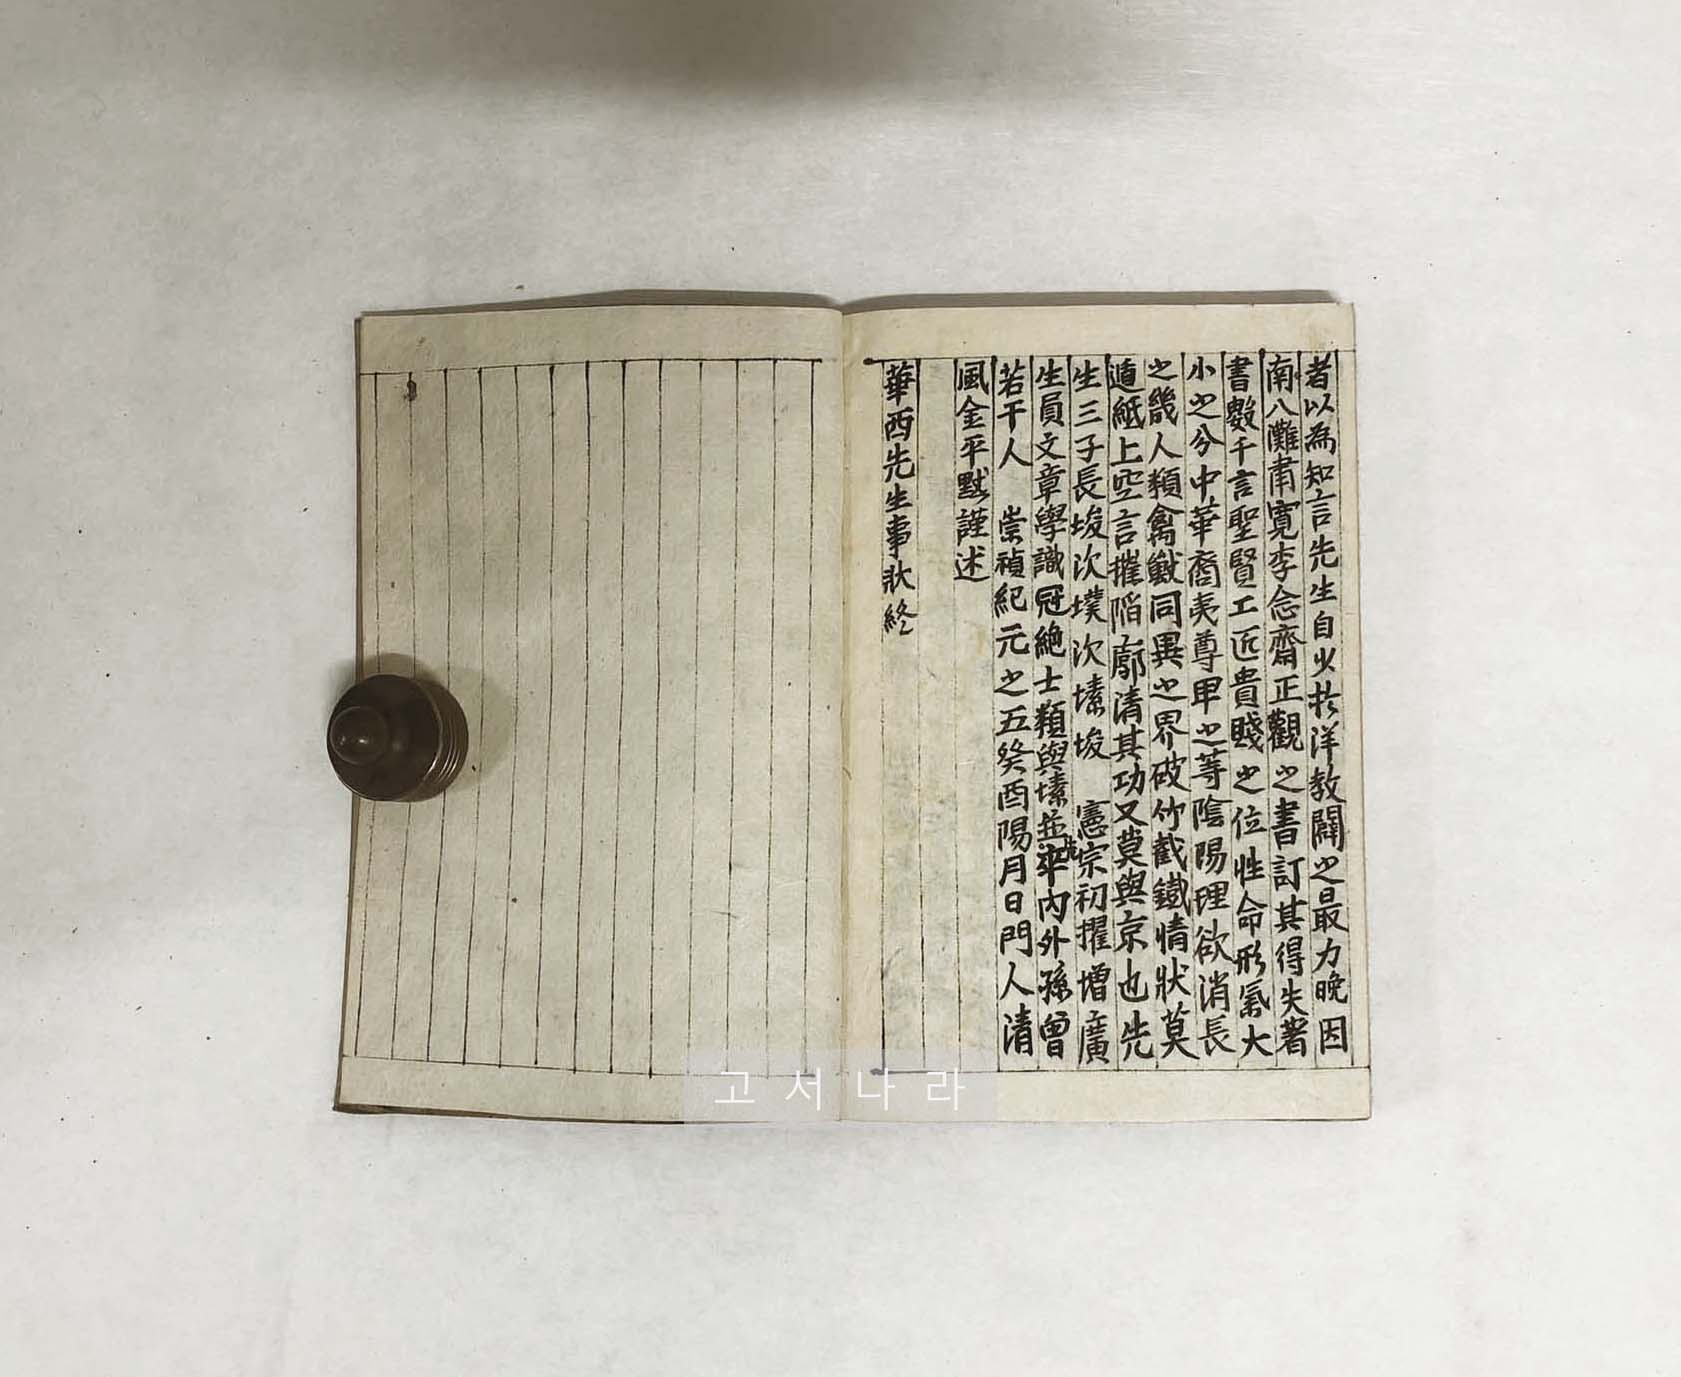 者以為知言先生自少於洋教闢之最力晚因
南八灘肅寬李念齋正觀之書訂其得失著
書數千言聖賢工近貴賤之位性命形氣大
小之分中華裔夷尊甲之等陰陽理欲消長
之幾人類禽獸同異之界破竹截鐵情狀莫
遁紙上空言摧陷廓清其功又莫與京也先
生三子長埈次墣次㙛埈 憲宗初擢增廣
生員文章學識冠絶士類與㙛並先卒內外孫曾
若干人 崇禎紀元之五癸酉陽月日門人清
風金平默謹述
華西先生事狀終
고서나라